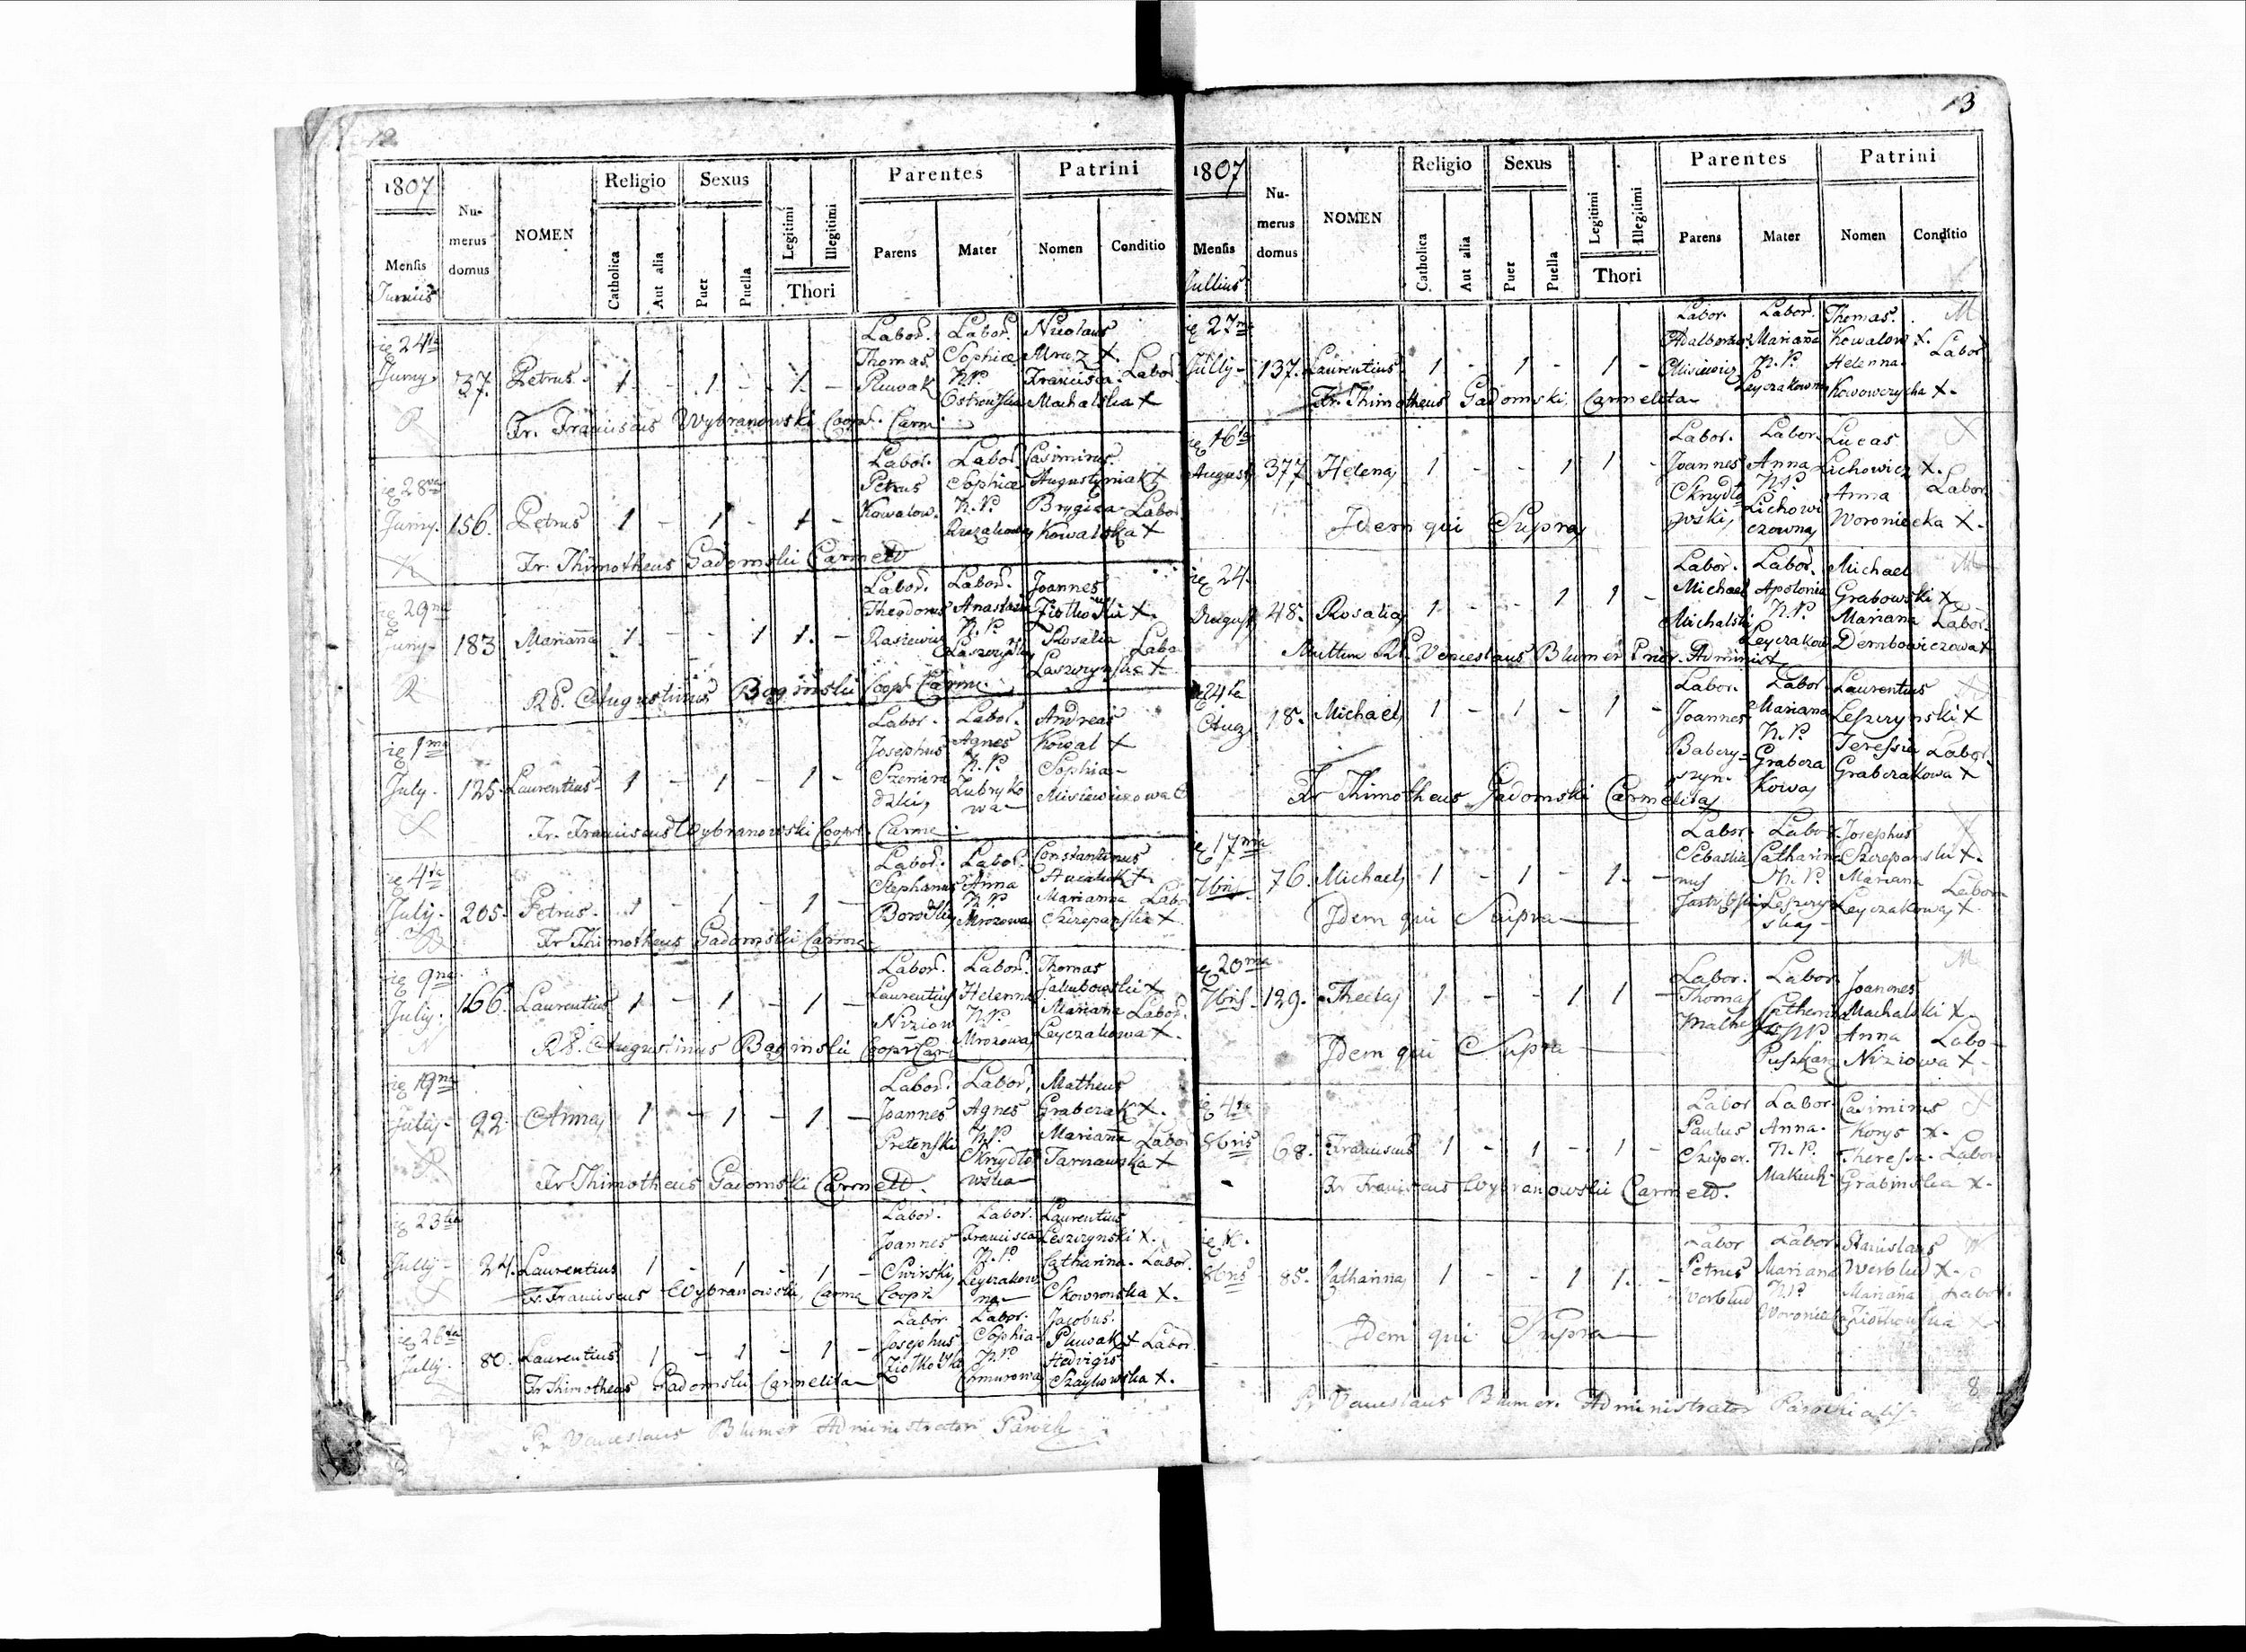 12
1807
Mensis
Junius
Numerus domus
NOMEN
Religio
Catholica
Aut alia
Sexus
Puer
Puella
Legitimi
Illegitimi
Thori
Parentes
Parens
Mater
Patrini
Nomen
Conditio
24ta Juny 37. Petrus 1 - 1 - 1 -
Labor. Thomas Pluwak
Labor. Sophia N.P. Ostrowska
Nicolaus Mroz X. Francisca Machalska X
Labor
Fr. Franciscus Wybranowski Coopr. Carm
28va Juny. 156. Petrus 1 - 1 - 1 -
Labor. Petrus Kowalow.
Labor. Sophia N.P.
Casimirus Augustyniak X Brygida Kowalska X
Labor
Fr. Thimotheus Gadomski Carmelt
29na Juny 183 Marianna 1 - - 1 1. -
Labor. Theodorus Rasiewicz
Labor. Anastasia N.P.
Joannes Ziotkowski X. Rosalia Laszczynska X
Labo
RP. Augustinus Baginski Coopr. Carme.
1ma July. 125. Laurentius 1 - 1 - 1 -
Labor. Josephus
Labor. Agnes N.P. Zubryko wa
Andreas Kowal X Sophia Misiewiczowa
Fr. Franciscus Wybranowski Coopr. Carme.
4ta July. 205. Petrus. 1 - 1 - 1 -
Labor. Stephanus
Labor. Anna N.P. Mrozowa
Constantinus X Marianna Szczepanska X.
Labo
Fr Thimotheus Gadomski Carme
9na July. 166. Laurentius 1 - 1 - 1 -
Labor. Laurentius Niziow
Labor. Helenna N.P. Mrozowa
Thomas Jakubowski X Mariana Leyczakowa X.
Labor.
RP. Augustinus Baginski Coopr Car
19na July 92 Anna 1 - 1 - 1. -
Labor. Joannes Pretenski
Labor. Agnes N.P. Skrydlo wska
Matheus Grabczak X. Marianna Tarnawska X
Labor
Fr Thimotheus Gadomski Carmelt.
23tia July 24. Laurentius 1 - 1 - 1 -
Labor. Joannes Swirski
Labor. Francisca N.P. Leyczakow na
Laurentius Leszczynski X. Catharina Skowronska X.
Labor.
Fr. Franciscus Wybranowski, Carme Coopr.
26ta July. 80. Laurentius 1 - 1 - 1 -
Labor Josephus
Labor. Sophia N.P. Chmurowa
Jacobus Pluwak X Hedvigis Szaykowska X.
Labor
Fr Thimotheus Gadomski Carmelita
Pr Venceslaus Blumer Administrator Paroch
13
1807
Mensis
Jullius
Numerus domus
NOMEN
Religio
Catholica
Aut alia
Sexus
Puer
Puella
Legitimi
Illegitimi
Thori
Parentes
Parens
Mater
Patrini
Nomen
Conditio
27ma July 137. Laurentius 1 - 1 - 1 -
Labor. Adalbertus Misiewicz
Labor. Marianna N.P. Leyczakowna
Thomas Kowalow X. Helenna Kowowczycha X.
Labor
Fr. Thimotheus Gadomski Carmelita
16ta August 377 Helena 1 - - 1 1 -
Labor. Joannes Skrydlo wski
Labor. Anna N.P. Lichowi czowna
Lucas Lichowicz X. Anna Woroniecka X.
Labor
Idem qui Supra
24 August 48. Rosalia 1 - - 1 1 -
Labor. Michael Michalski
Labor. Apolonia N.P. Leyczakow
Michael Grabowski X Mariana Dembowiczowa X
Labor.
RP. Venceslaus Blumer Prior. Administ.
24ta Aug 18. Michael 1 - 1 - 1 -
Labor. Joannes Babczy szyn
Labor Mariana N.P. Grabcza kowa
Laurentius Leszczynski X Teressia Grabczakowa X
Labor.
Fr Thimotheus Gadomski Carmelita
17ma 7bris 76. Michael 1 - 1 - 1. -
Labor. Sebastia nus
Labor. Catharina N.P. Leszczyn ska
Josephus Szczepanski X. Mariana Leyczakowa X.
Labor
Idem qui Supra
20ma 7bris 129. Thecla 1 - - 1 1 -
Labor. Thomas
Labor. N.P. Puszkar
Joannes Machalski X. Anna Niziowa X
Labo
Idem qui Supra
4ta 8bris 68. Franciscus 1 - 1 - 1 -
Labor Paulus Szuper.
Labor. Anna. N.P. Makuch
Casimirus Korys X. Theressa Grabinska X.
Labor
Fr Franciscus Wybranowski Carmelt.
8bris 85. Catharina 1 - - 1 1. -
Labor Petrus Werblud
Labor. Mariana N.P.
Stanislaus Werblud X. Mariana Ziotkowska
Labor.
Idem qui Supra
8
Pr Venceslaus Blumer. Administrator Parochialis